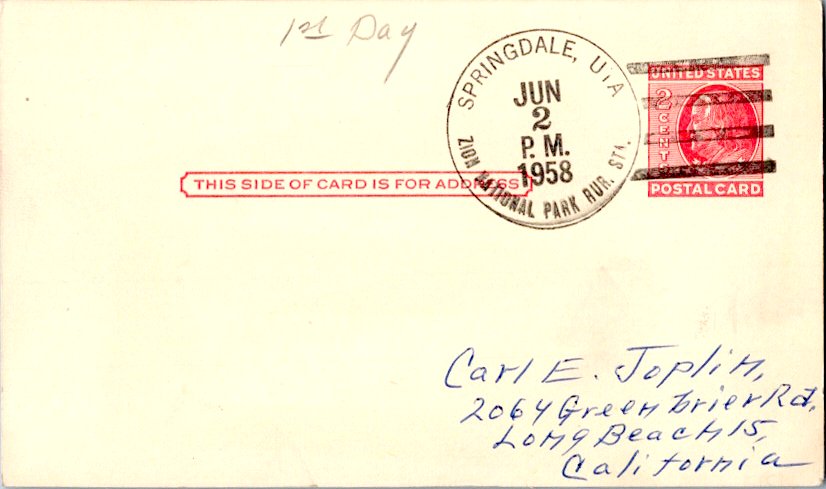 1st Day
SPRINGDALE, UTA
JUN
2
P. M.
1958
ZION NATIONAL PARK RUR. STA.
UNITED STATES
2
CENTS
POSTAL CARD
THIS SIDE OF CARD IS FOR ADDRESS
Carl E. Joplin,
2064 Greenbrier Rd.
Long Beach 15,
California